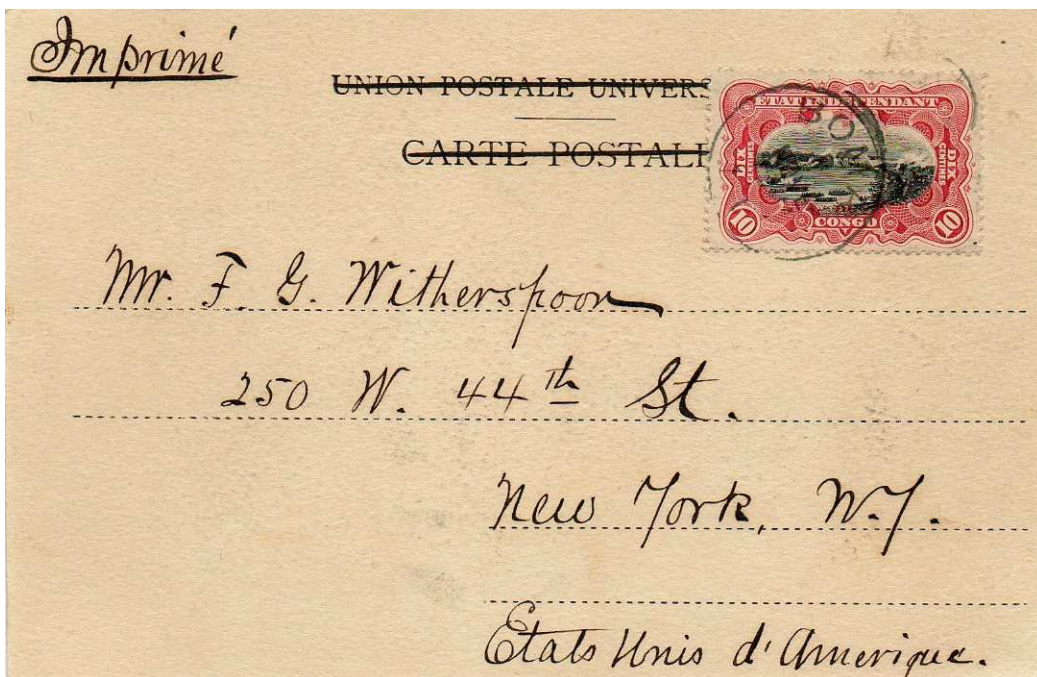 Imprimé
UNION POSTALE UNIVERS
CARTE POSTALE
ETAT INDEPENDANT
BOM
DIX CENTIMES
DIX CENTIMES
10 CONGO 10
Mr. F. G. Witherspoon
250 W. 44th St.
New York, N.Y.
Etats Unis d'Amerique.